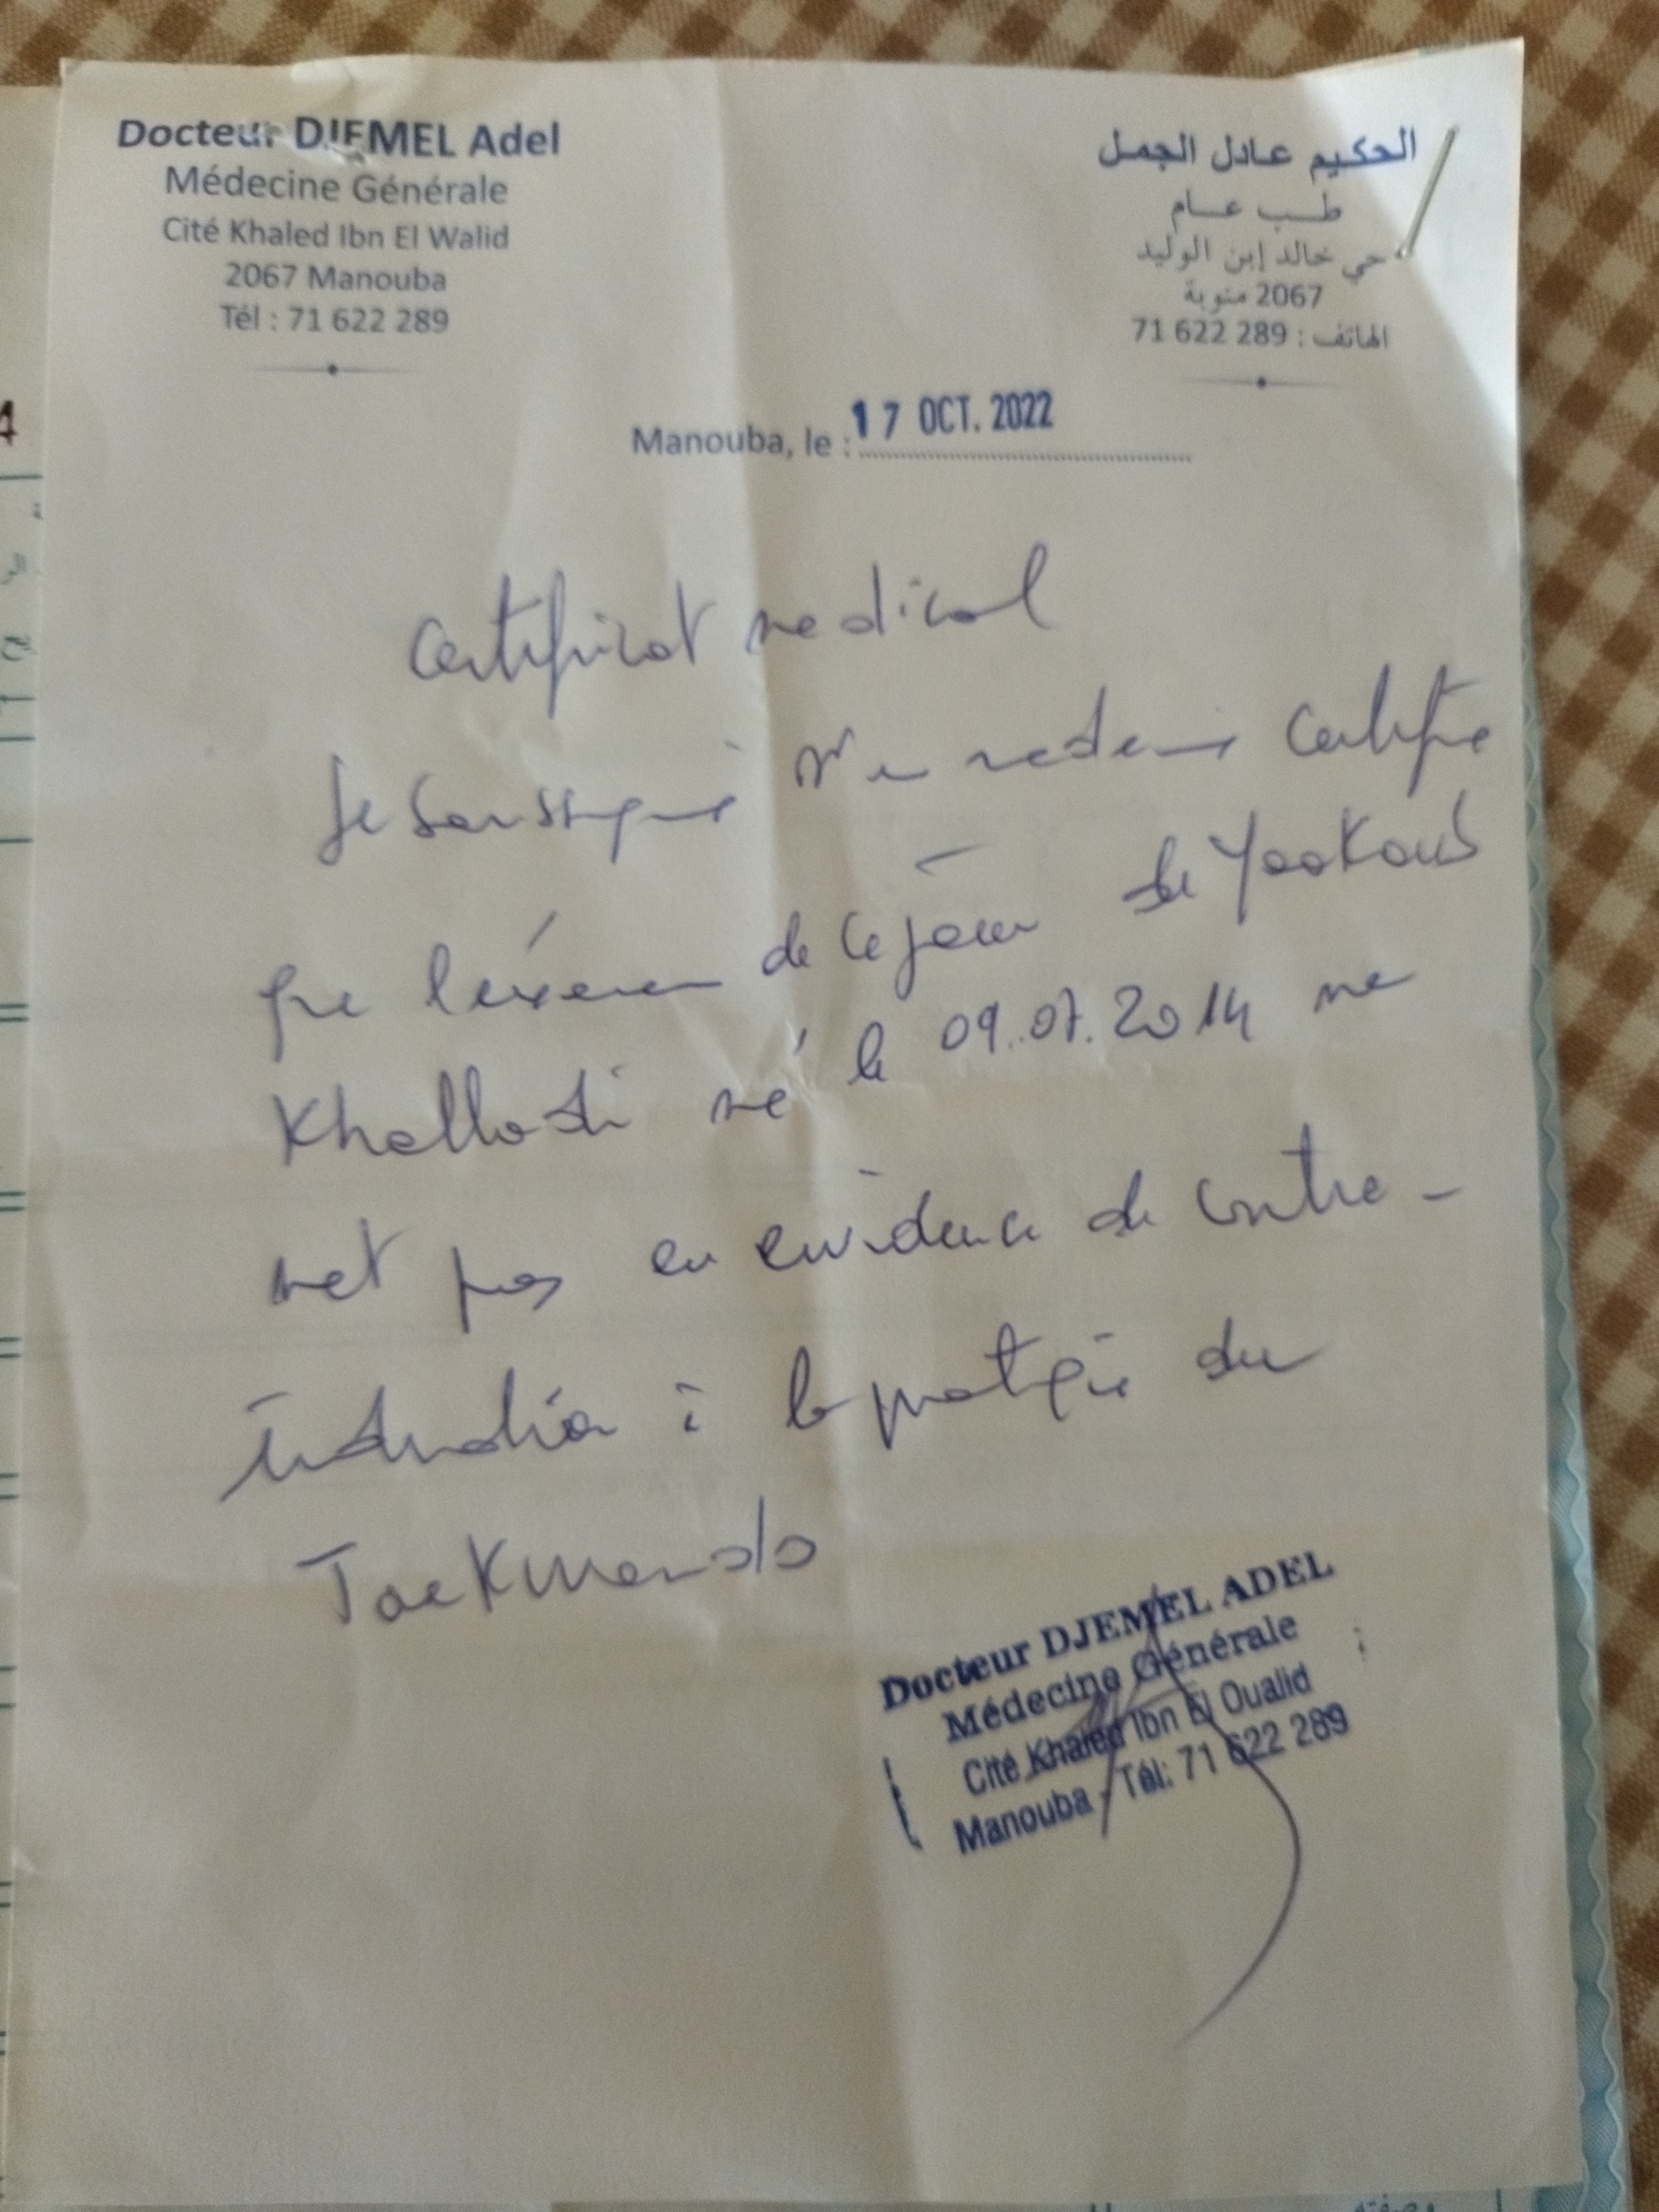 Docteur DJEMEL Adel
Médecine Générale
Cité Khaled Ibn El Walid
2067 Manouba
Tél : 71 622 289
الحكيم عادل الجمل
طب عام
حي خالد إبن الوليد
2067 منوبة
الهاتف : 289 622 71
Manouba, le : 17 OCT. 2022
Certificat medical
Je soussigné medecin certifie
que l'éxamen de ce jour de Yaakoub
Khalladi né le 09.07.2014 ne
met pas en evidence de contre-
indication à la pratique du
Taekwendo
Docteur DJEMEL ADEL
Médecine Générale
Cité Khaled Ibn El Oualid
Manouba - Tél: 71 622 289